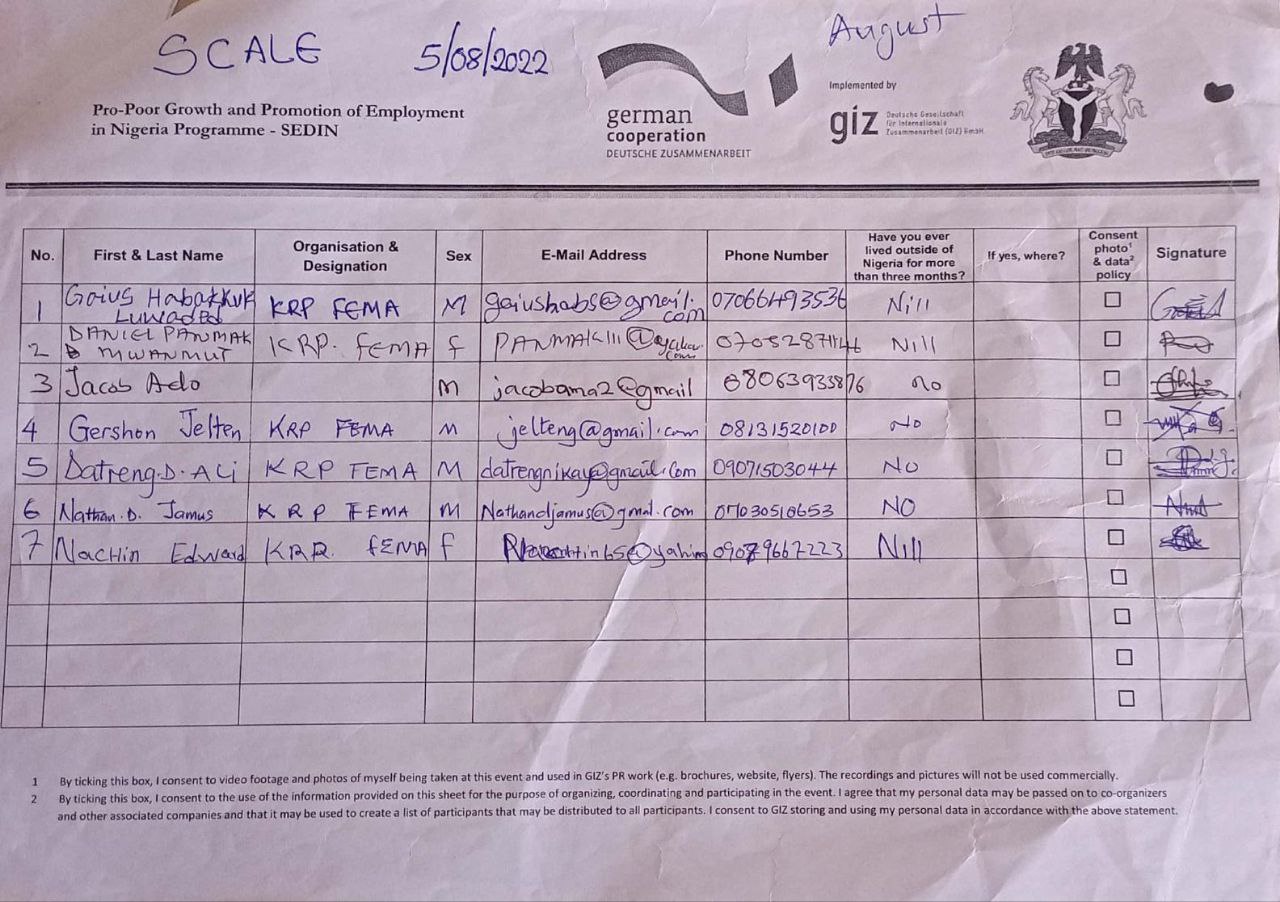 SCALE 5/08/2022 August
Pro-Poor Growth and Promotion of Employment
in Nigeria Programme - SEDIN
german
cooperation
DEUTSCHE ZUSAMMENARBEIT
Implemented by
giz Deutsche Gesellschaft
für Internationale
Zusammenarbeit (GIZ) GmbH
No. First & Last Name Organisation & Designation Sex E-Mail Address Phone Number Have you ever lived outside of Nigeria for more than three months? If yes, where? Consent photo¹ & data² policy Signature
1 Gaius Habakkuk KRP FEMA M gaiushabs@gmail.com 07066493536 Nill
2 DANIEL PANMAK MWANMUT KRP. FEMA F Nill
3 Jacob Ado M jacobama2@gmail 08063933876 no
4 Gershon Jelten KRP FEMA M jelteng@gmail.com 08131520100 No
5 Datreng.D. Ali KRP FEMA M datrengnikay@gmail.com 09071503044 No
6 Nathan.D. Jamus KRP FEMA M Nathandjamus@gmal.com 07030518653 NO
7 Nachin Edward FEMA F Nill
1 By ticking this box, I consent to video footage and photos of myself being taken at this event and used in GIZ's PR work (e.g. brochures, website, flyers). The recordings and pictures will not be used commercially.
2 By ticking this box, I consent to the use of the information provided on this sheet for the purpose of organizing, coordinating and participating in the event. I agree that my personal data may be passed on to co-organizers
and other associated companies and that it may be used to create a list of participants that may be distributed to all participants. I consent to GIZ storing and using my personal data in accordance with the above statement.